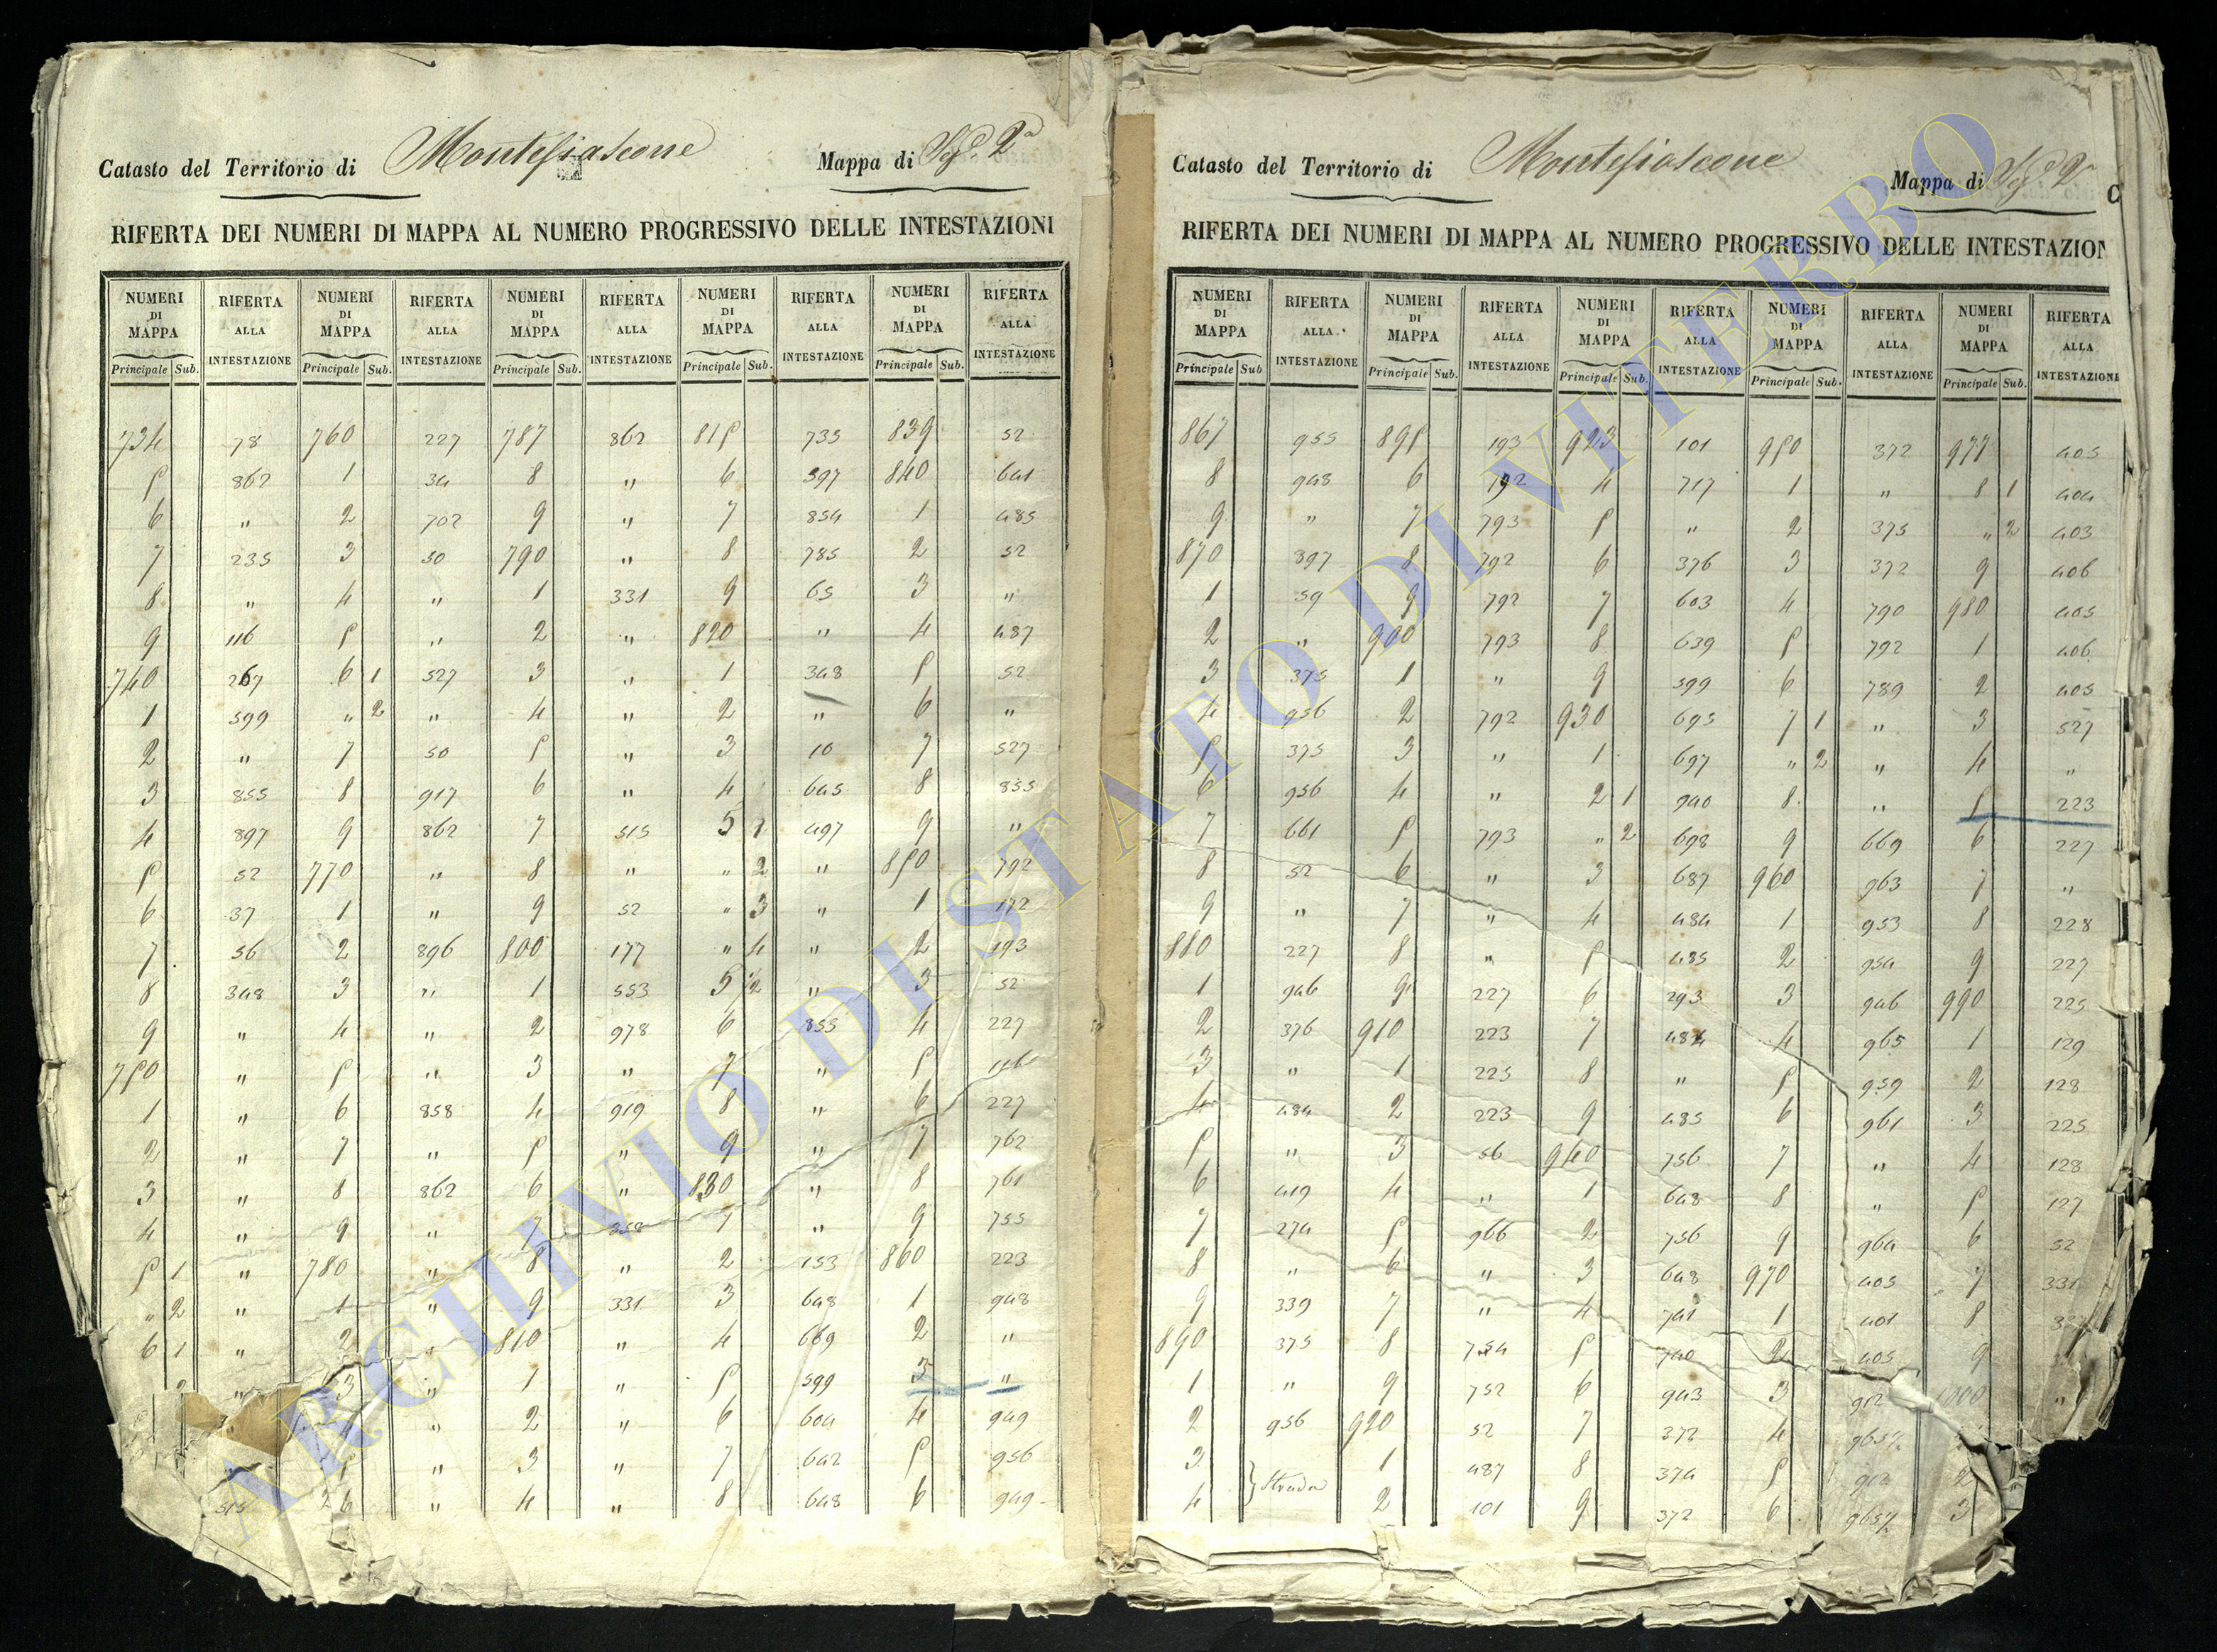 Catasto del Territorio di Montefiascone Mappa di Seg. 2ª
RIFERTA DEI NUMERI DI MAPPA AL NUMERO PROGRESSIVO DELLE INTESTAZIONI
NUMERI DI MAPPA RIFERTA ALLA INTESTAZIONE NUMERI DI MAPPA RIFERTA ALLA INTESTAZIONE NUMERI DI MAPPA RIFERTA ALLA INTESTAZIONE NUMERI DI MAPPA RIFERTA ALLA INTESTAZIONE NUMERI DI MAPPA RIFERTA ALLA INTESTAZIONE
Principale Sub. Principale Sub. Principale Sub. Principale Sub. Principale Sub.
734 78 760 227 787 862 815 735 839 52
5 862 1 34 8 " 6 597 840 641
6 " 2 702 9 " 7 854 1 485
7 235 3 50 790 " 8 785 2 52
8 " 4 " 1 331 9 65 3 "
9 116 5 " 2 " 820 " 4 487
740 267 6 1 527 3 " 1 348 5 52
1 599 " 2 " 4 " 2 " 6 "
2 " 7 50 5 " 3 10 7 527
3 855 8 917 6 " 4 645 8 855
4 897 9 862 7 515 5 1 497 9 "
5 52 770 " 8 " " 2 " 850 792
6 37 1 " 9 52 " 3 " 1 172
7 56 2 896 800 177 " 4 " 2 193
8 348 3 " 1 553 5 1/2 " 3 52
9 " 4 " 2 978 6 855 4 227
750 " 5 " 3 " 7 " 5 116
1 " 6 858 4 919 8 " 6 227
2 " 7 " 5 " 9 " 7 762
3 " 8 862 6 " 830 " 8 761
4 " 9 " 7 858 1 " 9 755
5 1 " 780 " 8 " 2 153 860 223
" 2 " 1 " 9 331 3 648 1 948
6 1 " 2 " 810 " 4 669 2 "
2 " 3 " 1 " 5 599 3 "
4 " 2 " 6 604 4 949
" 3 " 7 642 5 956
515 6 " 4 " 8 648 6 949
Catasto del Territorio di Montefiascone Mappa di Seg. 2ª
C
RIFERTA DEI NUMERI DI MAPPA AL NUMERO PROGRESSIVO DELLE INTESTAZION
NUMERI DI MAPPA RIFERTA ALLA INTESTAZIONE NUMERI DI MAPPA RIFERTA ALLA INTESTAZIONE NUMERI DI MAPPA RIFERTA ALLA INTESTAZIONE NUMERI DI MAPPA RIFERTA ALLA INTESTAZIONE NUMERI DI MAPPA RIFERTA ALLA INTESTAZIONI
Principale Sub Principale Sub. Principale Sub. Principale Sub. Principale Sub.
867 955 895 193 923 101 950 372 977 405
8 948 6 792 4 717 1 " 8 1 404
9 " 7 793 5 " 2 375 " 2 403
870 397 8 792 6 376 3 372 9 406
1 59 9 792 7 603 4 790 980 405
2 " 900 793 8 639 5 792 1 406
3 375 1 " 9 599 6 789 2 405
4 956 2 792 930 695 7 1 " 3 527
5 375 3 " 1 697 " 2 " 4 "
6 956 4 " 2 1 940 8 " 5 223
7 661 5 793 " 2 698 9 669 6 227
8 52 6 " 3 687 960 963 7 "
9 " 7 " 4 484 1 953 8 228
880 227 8 " 5 485 2 954 9 227
1 946 9 227 6 293 3 946 990 225
2 376 910 223 7 484 4 965 1 129
3 " 1 225 8 " 5 959 2 128
4 484 2 223 9 485 6 961 3 225
5 " 3 56 940 756 7 " 4 128
6 419 4 " 1 648 8 " 5 127
7 274 5 966 2 756 9 964 6 52
8 " 6 " 3 648 970 405 7 331
9 339 7 " 4 741 1 401 8
890 375 8 754 5 740 2 405 9
1 " 9 752 6 943 3 912 1000 "
2 956 920 52 7 372 4 965½
3 } Strada 1 487 8 374 5 912 2
4 2 101 9 372 6 965½ 3
ARCHIVIO DI STATO DI VITERBO